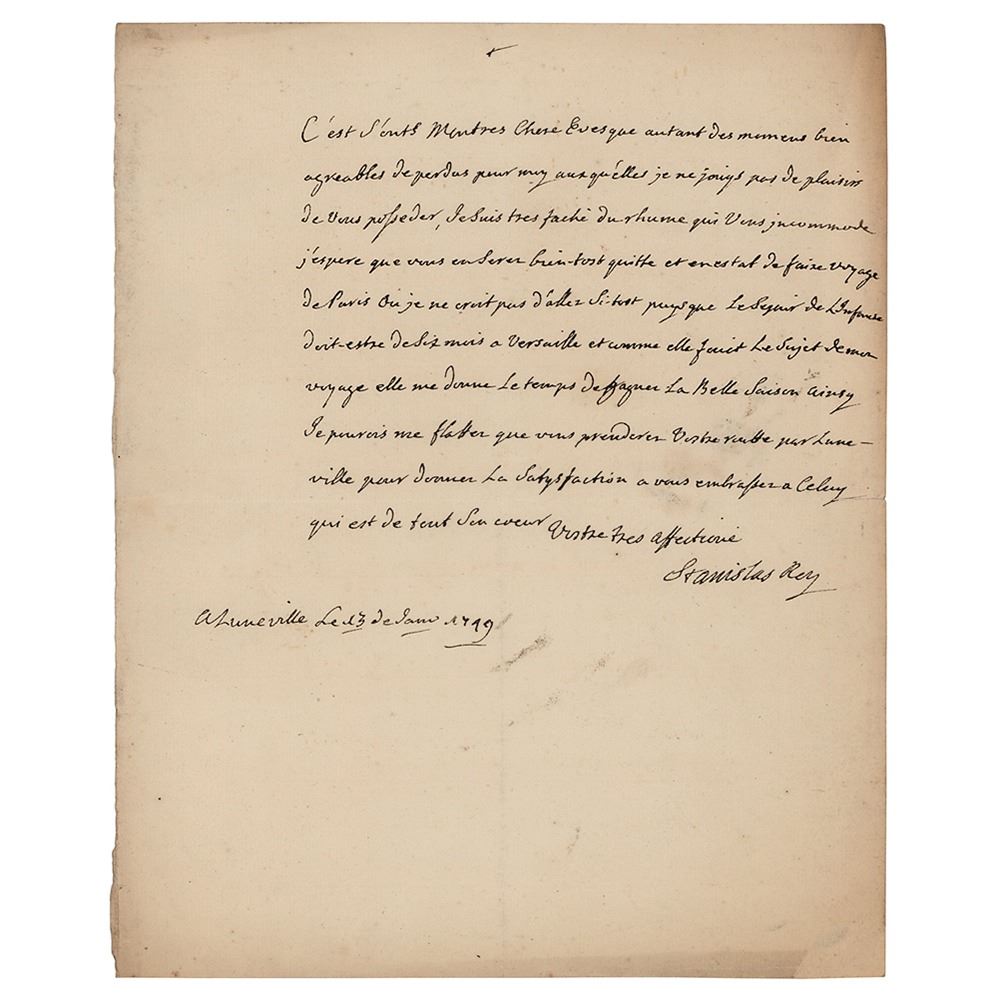 C'est S'ont Montres Chere Evesque autant des momens bien
agreables de perdus pour moy auxquélles je ne jouiys pas de plaisirs
de Vous posseder, Je suis tres faché du rhume qui Vous jncommode
j'espere que vous en Serez bien-tost quitte et en estat de faire voyage
de Paris Ou je ne croit pas d'aller Si-tost puysque Le Sejour de L'Infante
doit-estre de Six mois a Versaille et comme elle fait Le Sujet de mon
voyage elle me donne Le temps de gagner La Belle Saison ainsy
Je pourois me flatter que vous prenderez Vostre routte par Lune-
ville pour donner La Satysfaction a vous embrasser a Celuy
qui est de tout Son coeur Vostre tres affectioné
Stanislas Roy
A Luneville Le 13 de Janv 1749